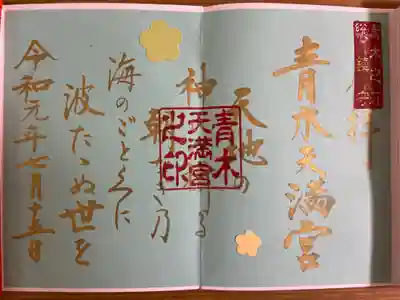 青木天満宮
天地の
神
る
乃
海のごとくに
波たゝぬ世を
令和元年七月十五日
青木
天満宮
之印